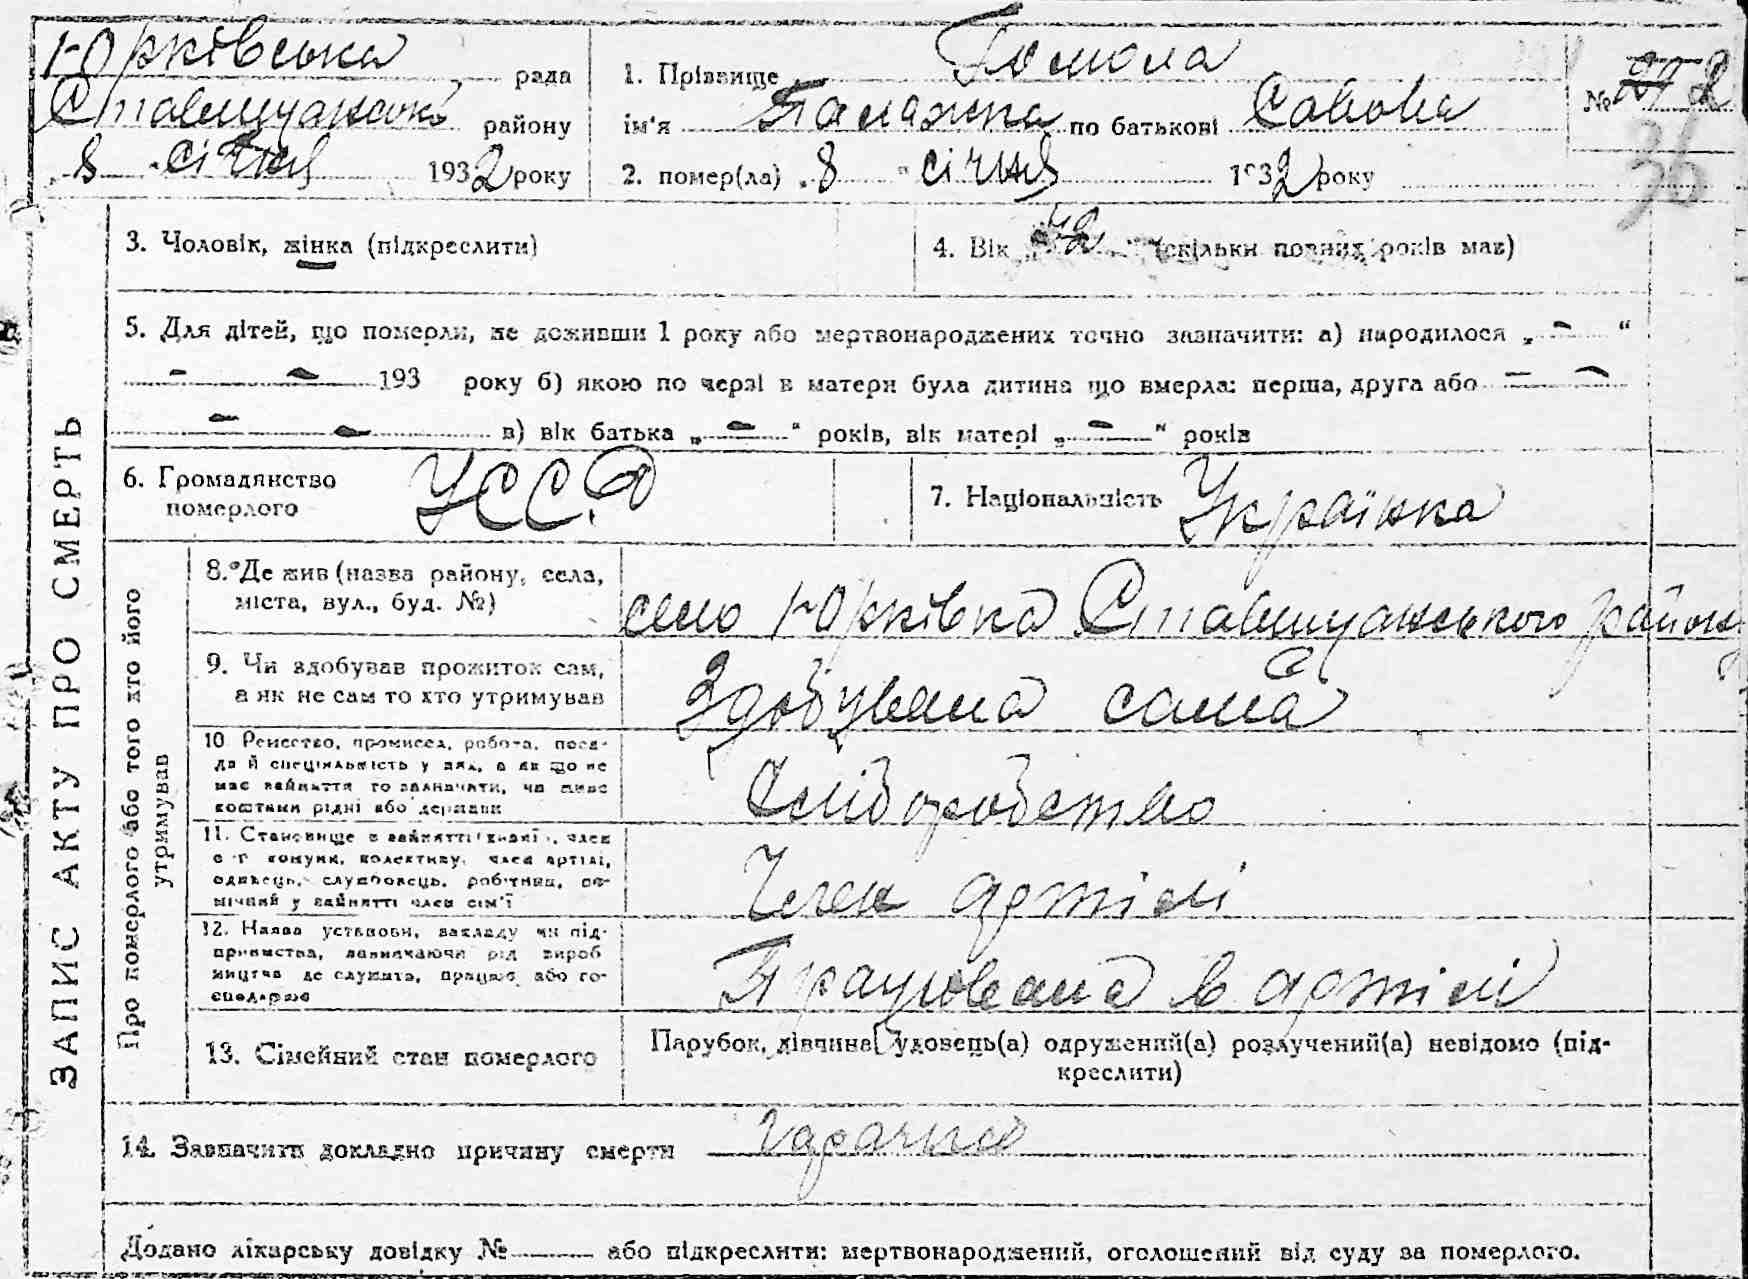 Юрківська рада
Ставищанського району
„8 „ січня 1932 року
1. Прізвище Гомола
ім'я Палажка по батькові Савова
2. помер(ла) „8 " січня 1932 року
№ 2
36
3. Чоловік, жінка (підкреслити)
4. Вік „ 42 " (скільки повних років мав)
5. Для дітей, що померли, не доживши 1 року або мертвонароджених точно зазначити: а) народилося „ - “
- - 193 року б) якою по черзі в матери була дитина що вмерла: перша, друга або - -
- - в) вік батька „ - " років, вік матері „ - " років
6. Громадянство
померлого
УССР
7. Національність Українка
ЗАПИС АКТУ ПРО СМЕРТЬ
Про померлого або того хто його
утримував
8. Де жив (назва району, села,
міста, вул., буд. №)
село Юрківка Ставищанського району
9. Чи здобував прожиток сам,
а як не сам то хто утримував
Здобувала сама
10 Ремество, промисел, робота, поса-
да й спеціяльність у ній, а як що не
має зайняття то зазначити, чи живе
коштами рідні або держави
Хліборобство
11. Становище в зайнятті член
с-г комуни, колективу, член артілі,
одинець, службовець, робітник, по-
мічний у зайнятті член сім'ї
Член артілі
12. Назва установи, закладу чи під-
приємства, зазначаючи рід вироб
ництва де служить, працює або го-
сподарює
Працювала в артілі
13. Сімейний стан померлого
Парубок, дівчина, удовець(а) одружений(а) розлучений(а) невідомо (під-
креслити)
14. Зазначити докладно причину смерти
Додано лікарську довідку № або підкреслити: мертвонароджений, оголошений від суду за померлого.